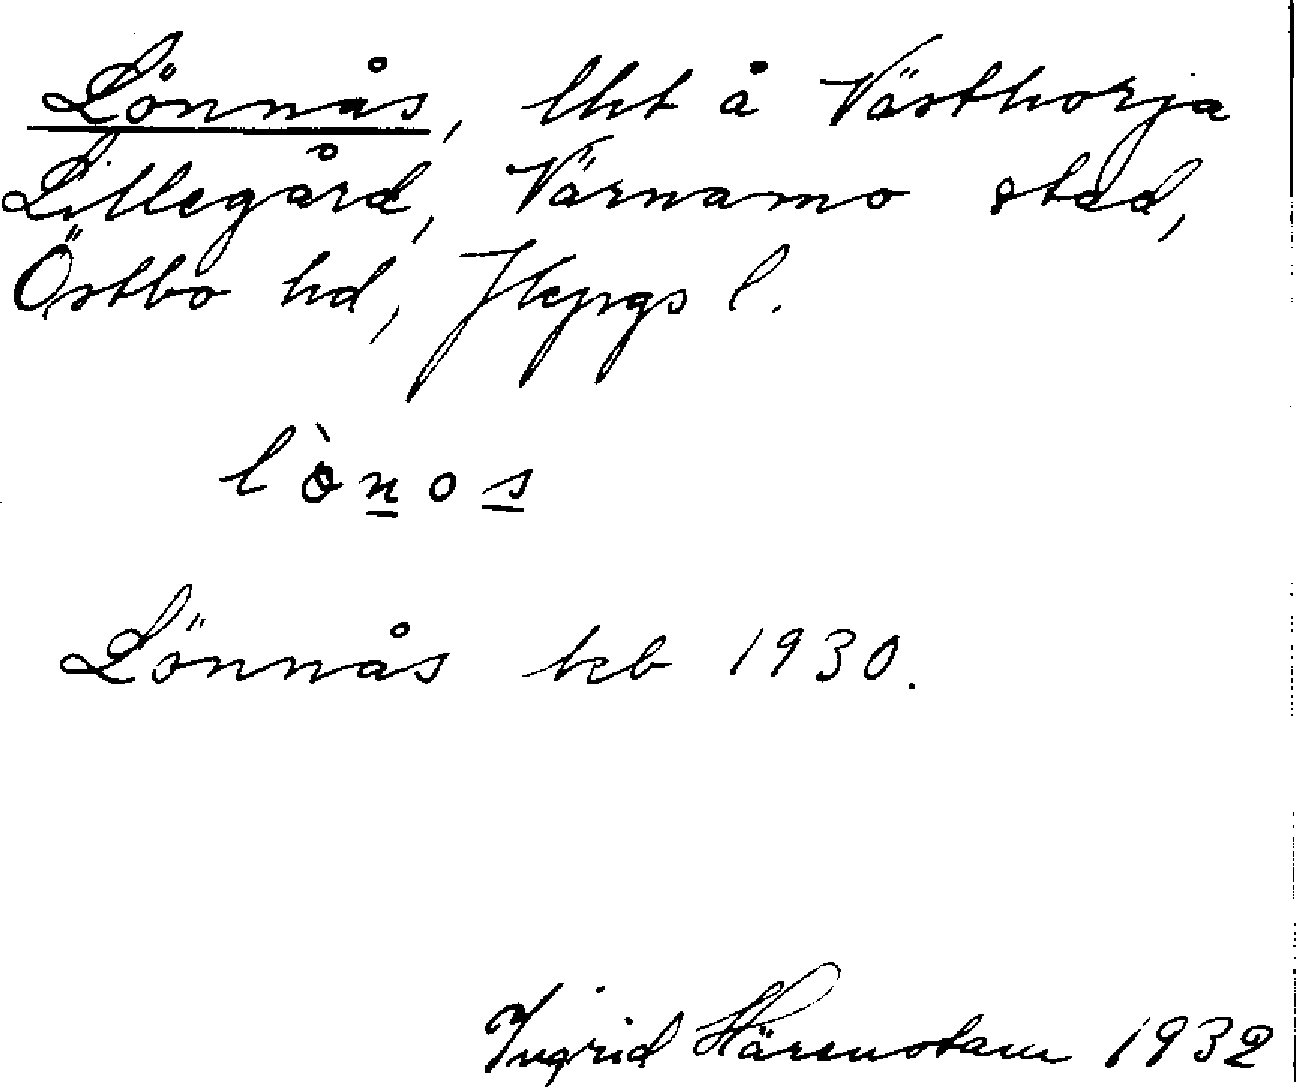 Lönnås, lht å Västhorja
Lillegård, Värnamo stad,
Östbo hd, Jkpgs l.
lònos
Lönnås keb 1930.
Ingrid Härenstam 1932